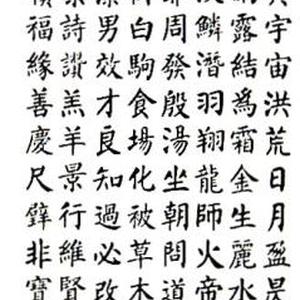 宇宙洪荒日月盈昃
露結為霜金生麗水
鱗潛羽翔龍師火帝
周發殷湯坐朝問道
白駒食場化被草木
男效才良知過必改
詩讚羔羊景行維賢
福緣善慶尺璧非寶